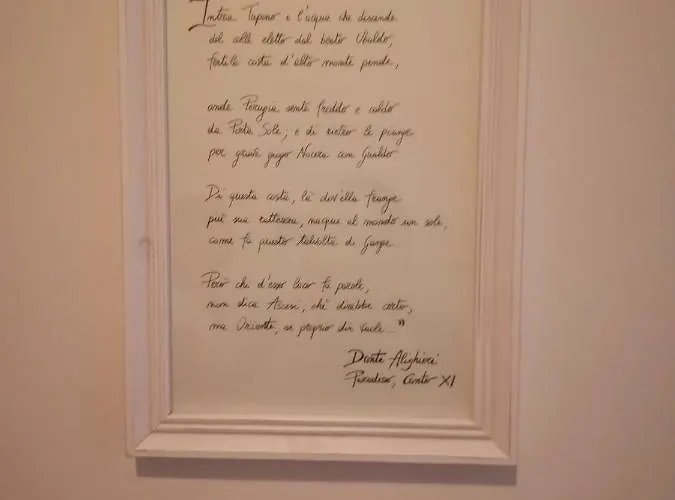 Intra Tupino e l'acqua che discende
del colle eletto dal beato Ubaldo,
fertile costa d'alto monte pende,
onde Perugia sente freddo e caldo
da Porta Sole; e di rietro le piange
per grave giogo Nocera con Gualdo
Di questa costa, là dov'ella frange
più sua rattezza, nacque al mondo un sole,
come fa questo talvolta di Gange
Però chi d'esso loco fa parole,
non dica Ascesi, ché direbbe corto,
ma Oriente, se proprio dir vuole..."
Dante Alighieri
Paradiso, Canto XI